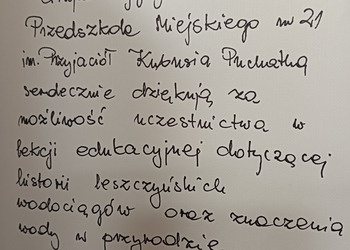 Przedszkola Miejskiego nr 21
im. Przyjaciół Kubusia Puchatka
serdecznie dziękują za
możliwość uczestnictwa w
lekcji edukacyjnej dotyczącej
historii leszczyńskich
wodociągów oraz znaczenia
wody w przyrodzie